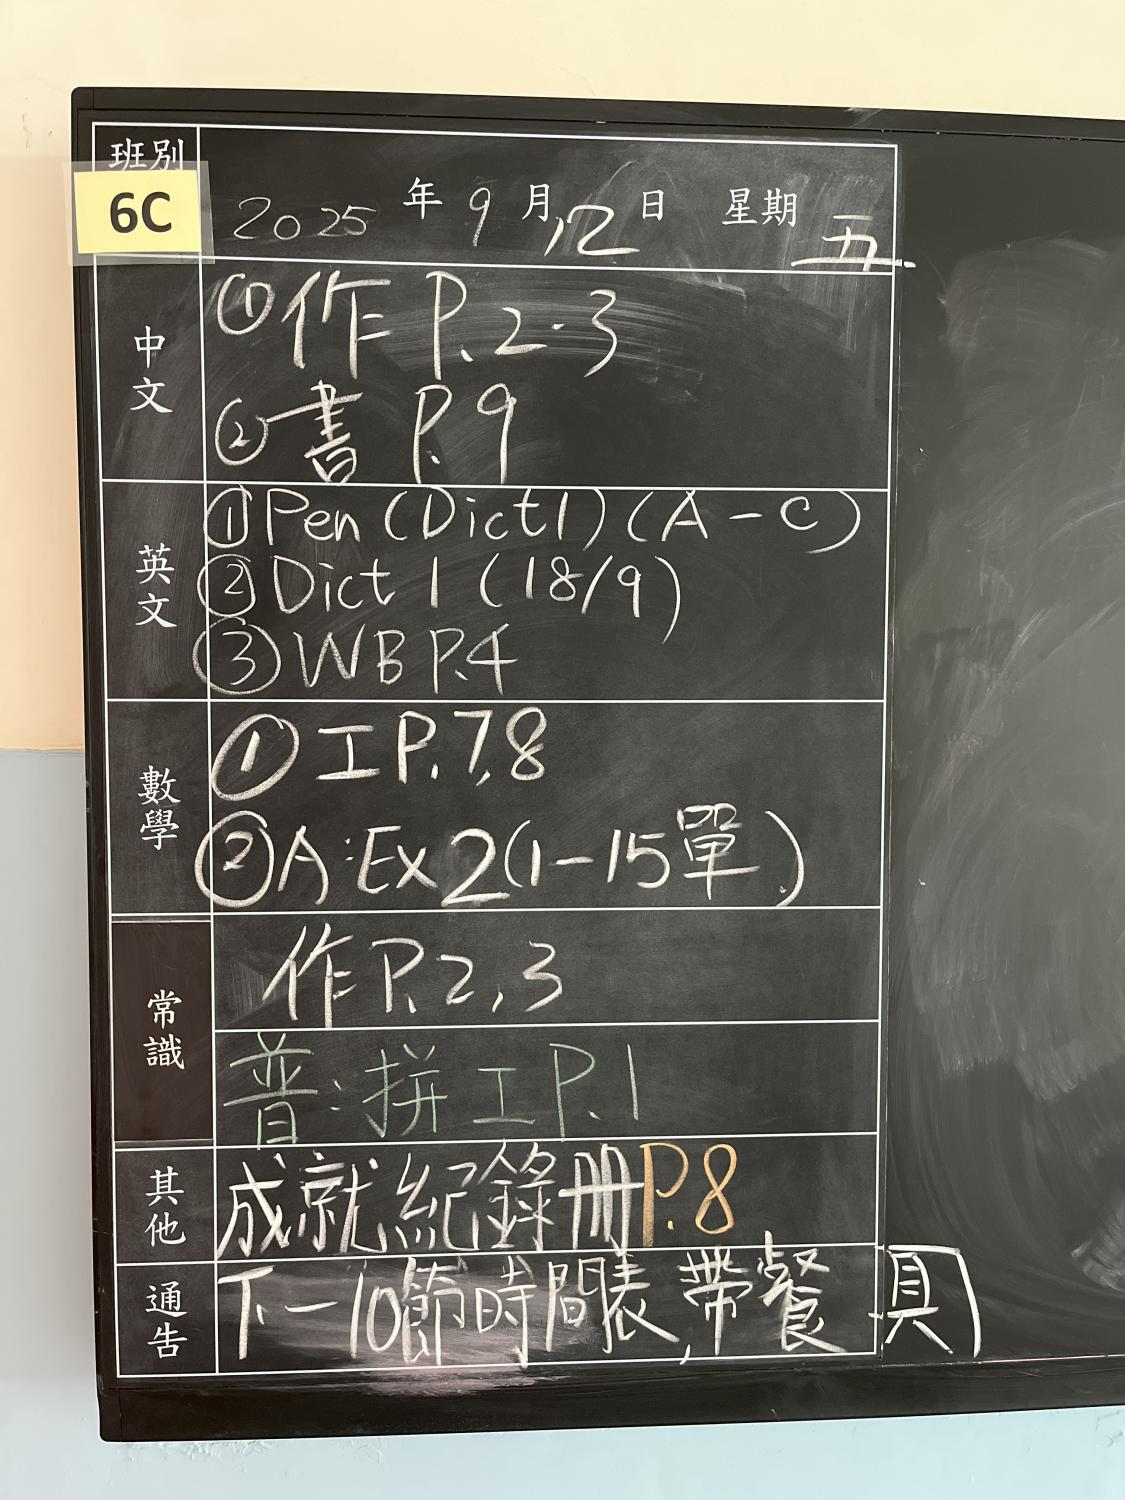 班別
6C
2025 年 9 月 12 日 星期 五
中文
①作 P.2.3
②書 P.9
英文
①Pen (Dict1) (A-C)
②Dict 1 (18/9)
③WB P.4
數學
①工P.7,8
②A:Ex 2(1-15單)
常識
作P.2,3
普:拼工P.1
其他
成就紀錄冊P.8
通告
下一10節時間表,帶餐具